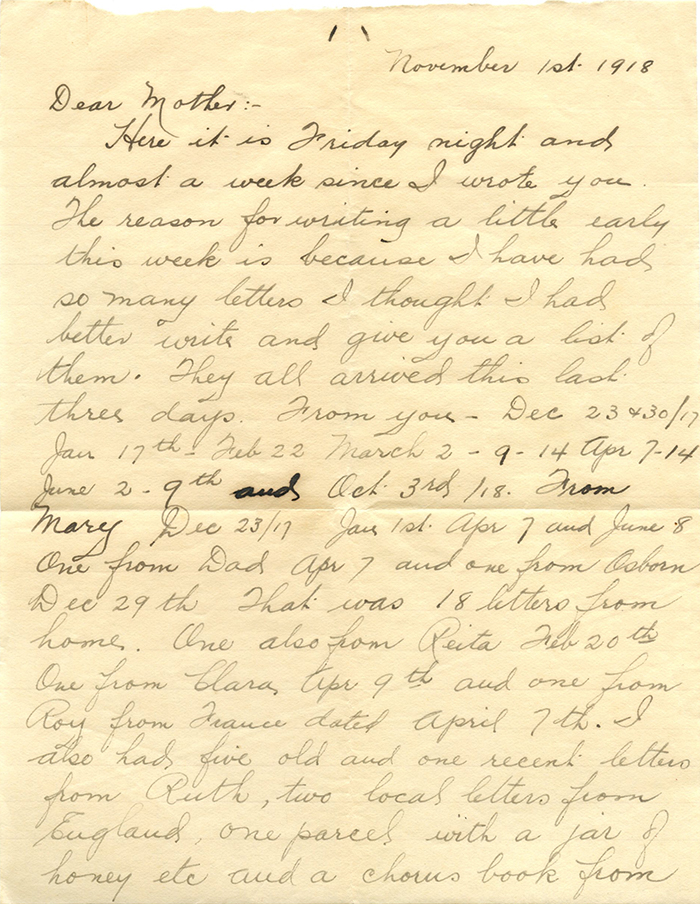 November 1st 1918
Dear Mother:-
Here it is Friday night and
almost a week since I wrote you.
The reason for writing a little early
this week is because I have had
so many letters I thought I had
better write and give you a list of
them. They all arrived this last
three days. From you - Dec 23 & 30/17
Jan 17th - Feb 22 March 2 - 9 - 14 Apr 7-14
June 2 - 9th and Oct 3rd /18. From
Mary Dec 23/17 Jan 1st Apr 7 and June 8
One from Dad Apr 7 and one from Osborn
Dec 29th That was 18 letters from
home. One also from Reita Feb 20th
One from Clara Apr 9th and one from
Roy from France dated April 7th. I
also had five old and one recent letters
from Ruth, two local letters from
England, one parcel with a jar of
honey etc and a chorus book from